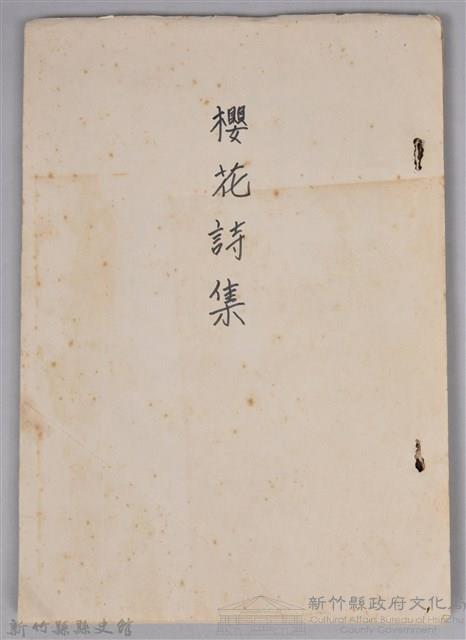 櫻花詩集
新竹縣政府文化局
Cultural Affairs Bureau of Hsinchu
County Government
新竹縣縣史館